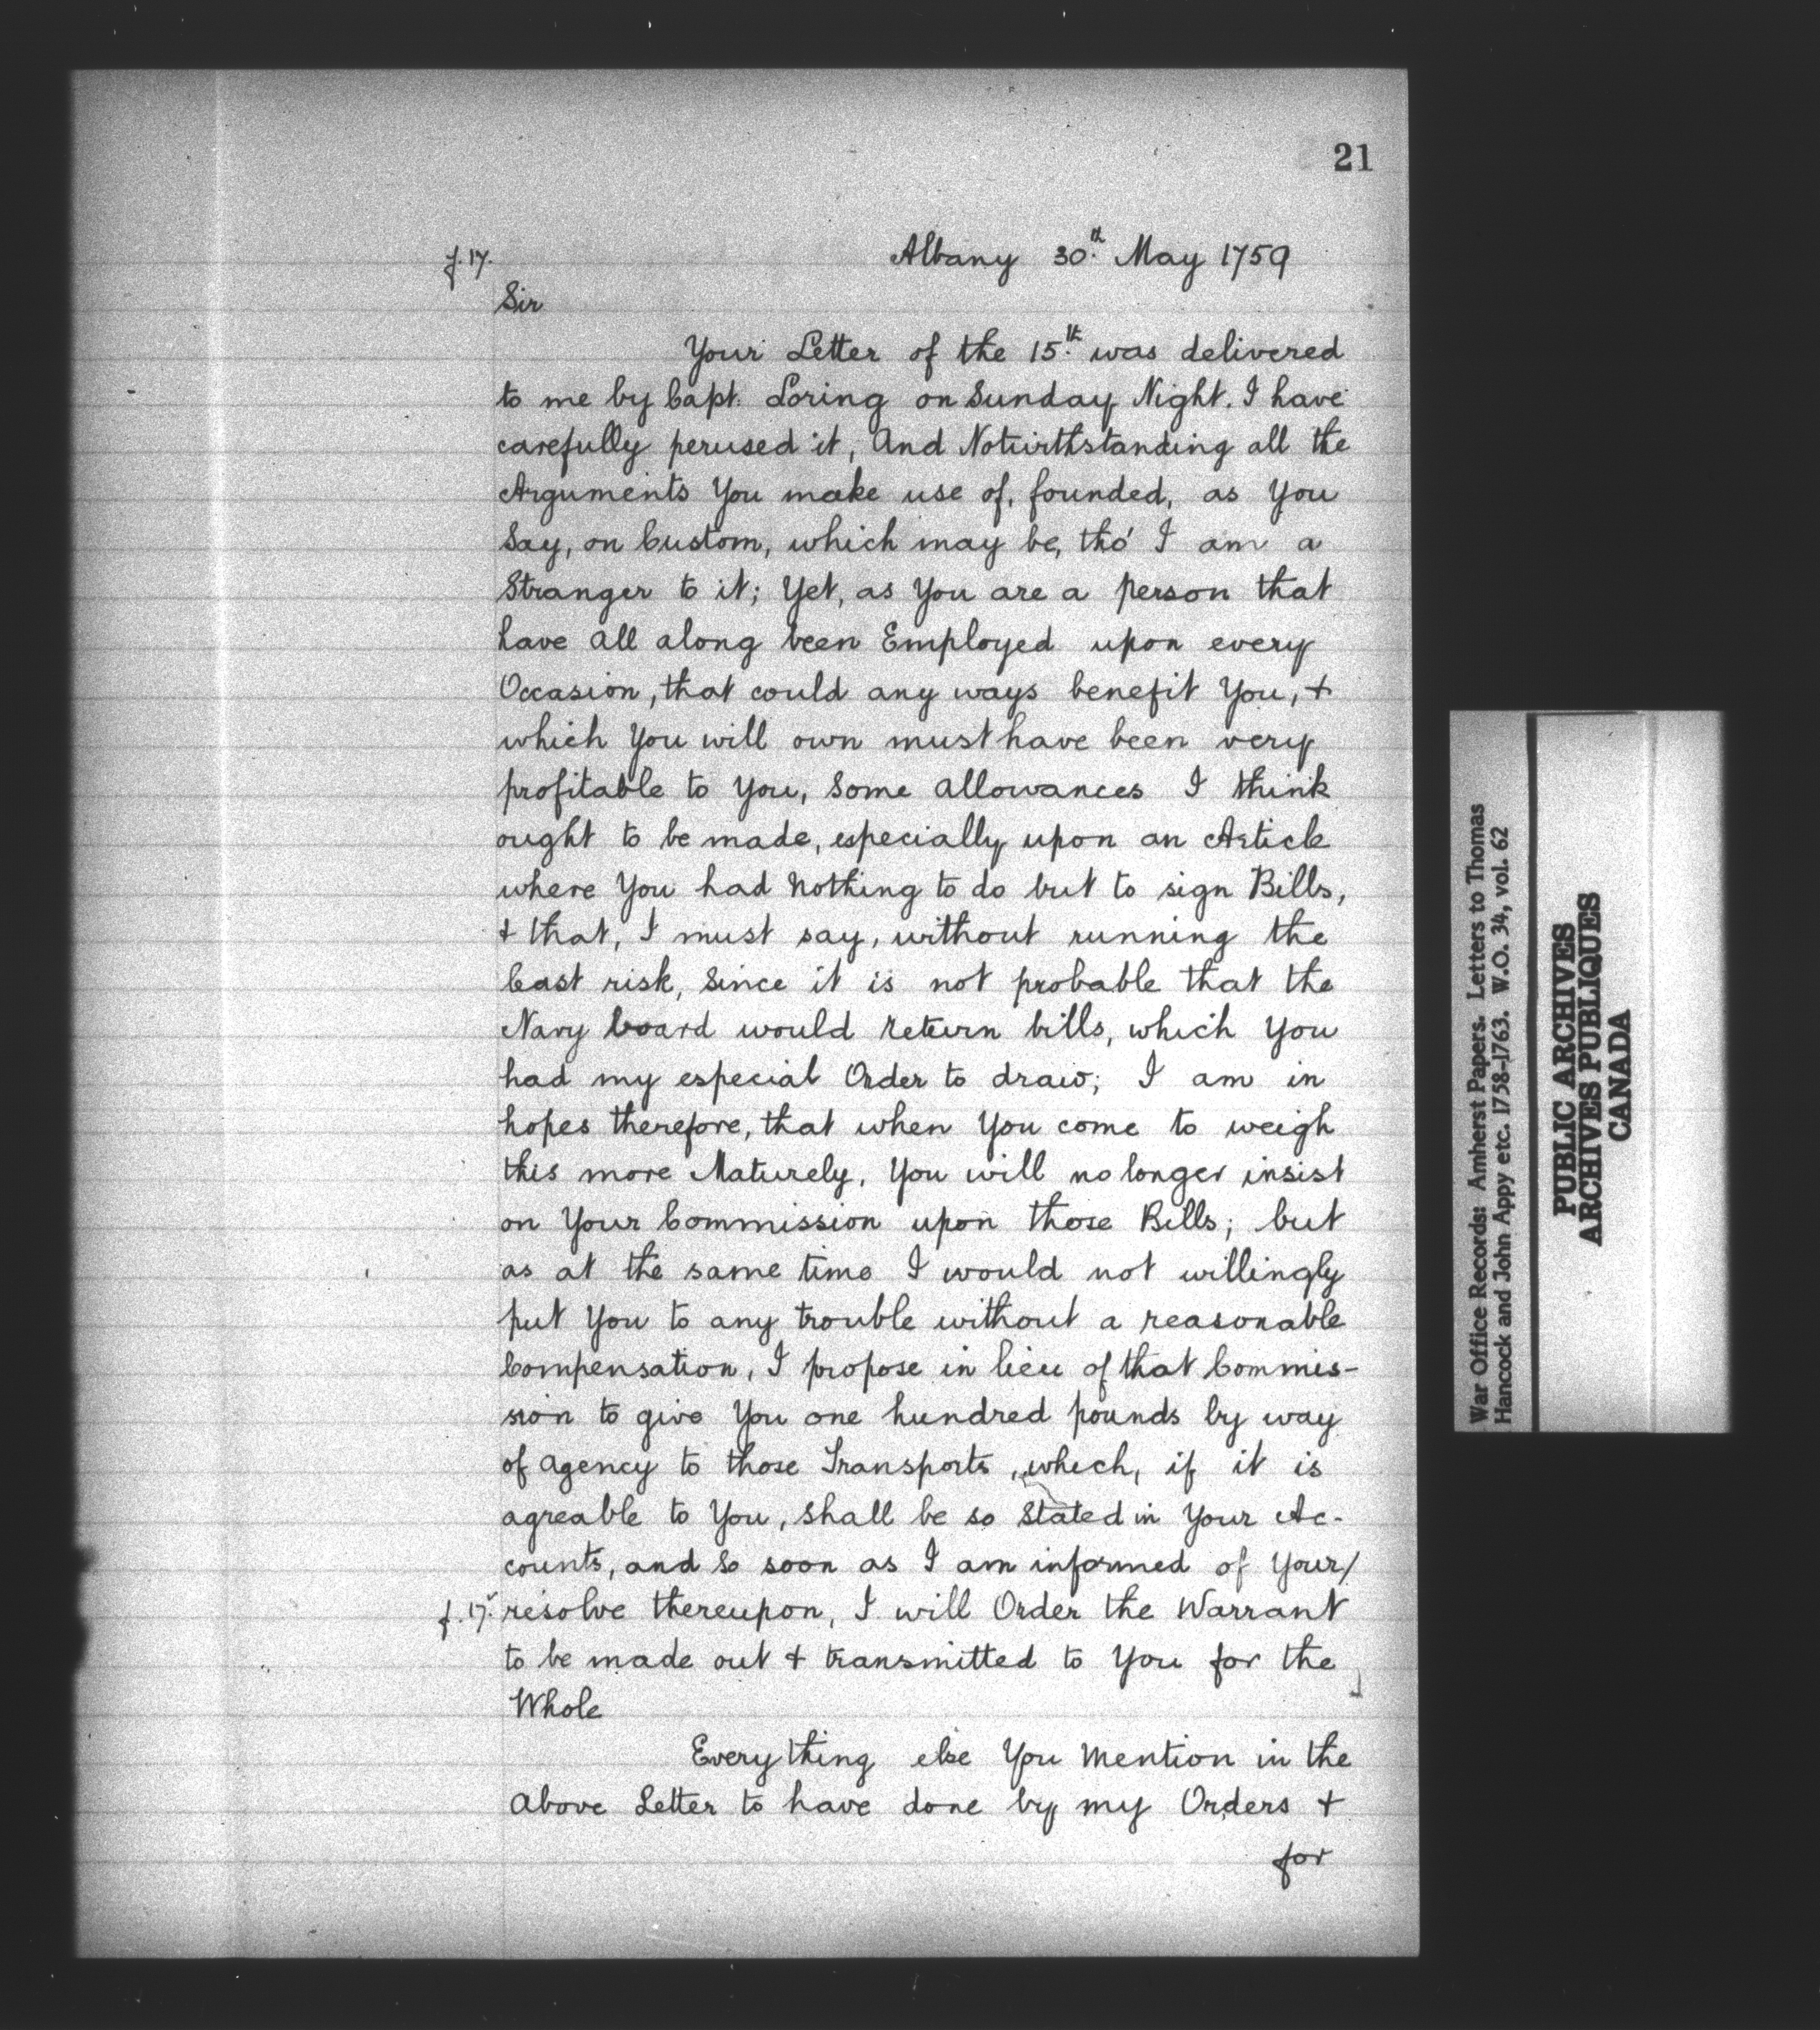 21
f. 17.
Albany 30.th May 1759
Sir
Your Letter of the 15.th was delivered
to me by Capt. Loring on Sunday Night. I have
carefully perused it, And Notwithstanding all the
Arguments You make use of, founded, as You
Say, on Custom, which may be, tho' I am a
Stranger to it; Yet, as You are a person that
have all along been Employed upon every
Occasion, that could any ways benefit You, +
which You will own must have been very
profitable to You, Some allowances I think
ought to be made, especially upon an Article
where You had Nothing to do but to sign Bills,
+ that, I must say, without running the
least risk, Since it is not probable that the
Navy board would return bills, which You
had my especial Order to draw; I am in
hopes therefore, that when You come to weigh
this more Maturely, You will no longer insist
on Your Commission upon those Bills; but
as at the same time I would not willingly
put You to any trouble without a reasonable
Compensation, I propose in lieu of that Commis-
sion to give You one hundred pounds by way
of Agency to those Transports, which, if it is
agreable to You, shall be so Stated in Your Ac-
counts, and so soon as I am informed of Your/
f. 17.v resolve thereupon, I will Order the Warrant
to be made out + transmitted to You for the
Whole
Every thing else You Mention in the
above Letter to have done by my Orders +
for
War Office Records: Amherst Papers. Letters to Thomas
Hancock and John Appy etc. 1758-1763. W.O. 34, vol. 62
PUBLIC ARCHIVES
ARCHIVES PUBLIQUES
CANADA